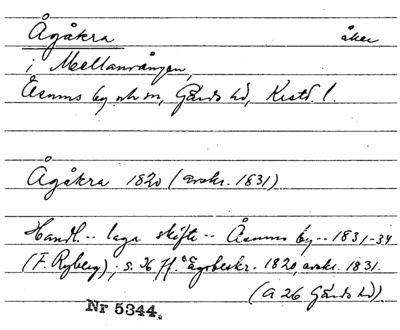 Ågåkra åker
i Mellanvången,
Åsums by och sn, Gärds hd, Kristi. l.
Ågåkra 1820 (avskr. 1831)
Handl. -- laga skifte -- Åsums by -- 1831-34
(F. Ryberg), s. 26 ff. "Egobeskr. 1820, avskr. 1831.
(A 26 Gärds hd).
Nr 5344.